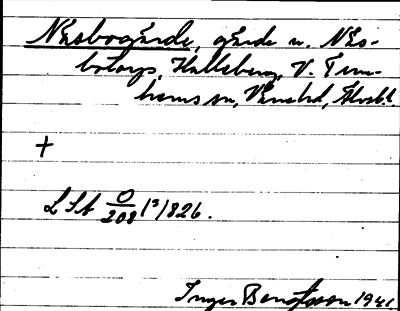 Näsbogärde, gärde u. Näs-
botorp, Halleberg, V. Tun-
hems sn, Väne hd, Älvsb. l.
+
LSA O/208 1³/1826.
Inger Bengtsson 1941.